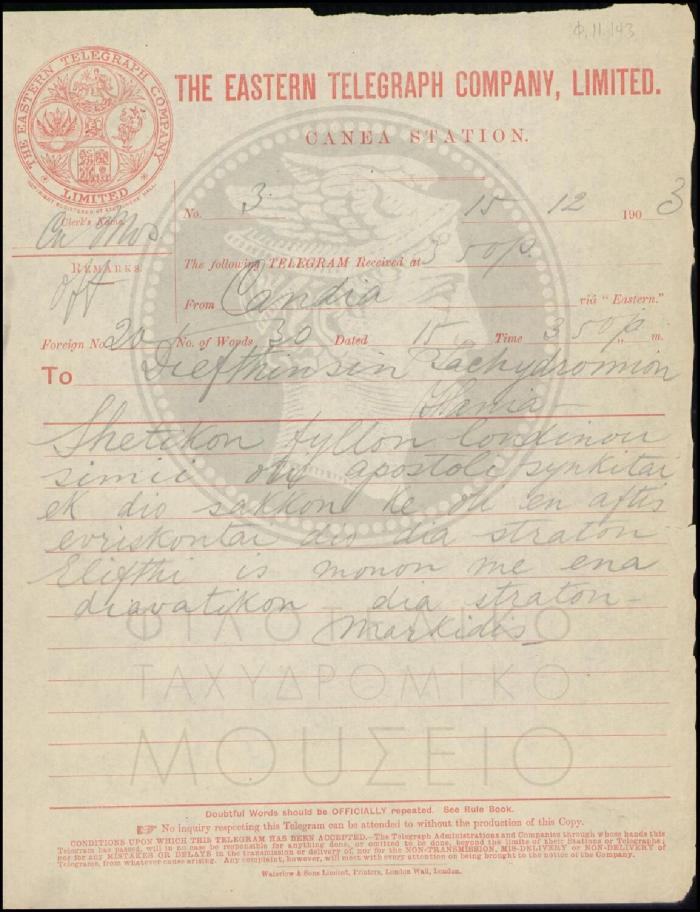 Φ.11.143
THE EASTERN TELEGRAPH COMPANY
LIMITED
THE EASTERN TELEGRAPH COMPANY, LIMITED.
CANEA STATION.
Clerk's Name.
No. 3 15 12 1903
REMARKS.
off
The following TELEGRAM Received at 3 50 p.
From Candia via "Eastern."
Foreign No. 20 No. of Words 30 Dated 15 Time 3 50 p. m.
To Diefthinsin Tachydromion
Hania
Shetikon fyllon londinou
simii oti apostoli synkitai
ek dio sakkon ke oti en aftis
evriskontai dio dia straton
Elifthi is monon me ena
diavatikon dia straton-
Markidis
ΦΙΛΟΤΕΛΙΚΟ
ΤΑΧΥΔΡΟΜΙΚΟ
ΜΟΥΣΕΙΟ
Doubtful Words should be OFFICIALLY repeated. See Rule Book.
No inquiry respecting this Telegram can be attended to without the production of this Copy.
CONDITIONS UPON WHICH THIS TELEGRAM HAS BEEN ACCEPTED.—The Telegraph Administrations and Companies through whose hands this
Telegram has passed, will in no case be responsible for anything done, or omitted to be done, beyond the limits of their Stations or Telegraphs;
nor for any MISTAKES OR DELAYS in the transmission or delivery of, nor for the NON-TRANSMISSION, MIS-DELIVERY or NON-DELIVERY of
Telegrams, from whatever cause arising. Any complaint, however, will meet with every attention on being brought to the notice of the Company.
Waterlow & Sons Limited, Printers, London Wall, London.